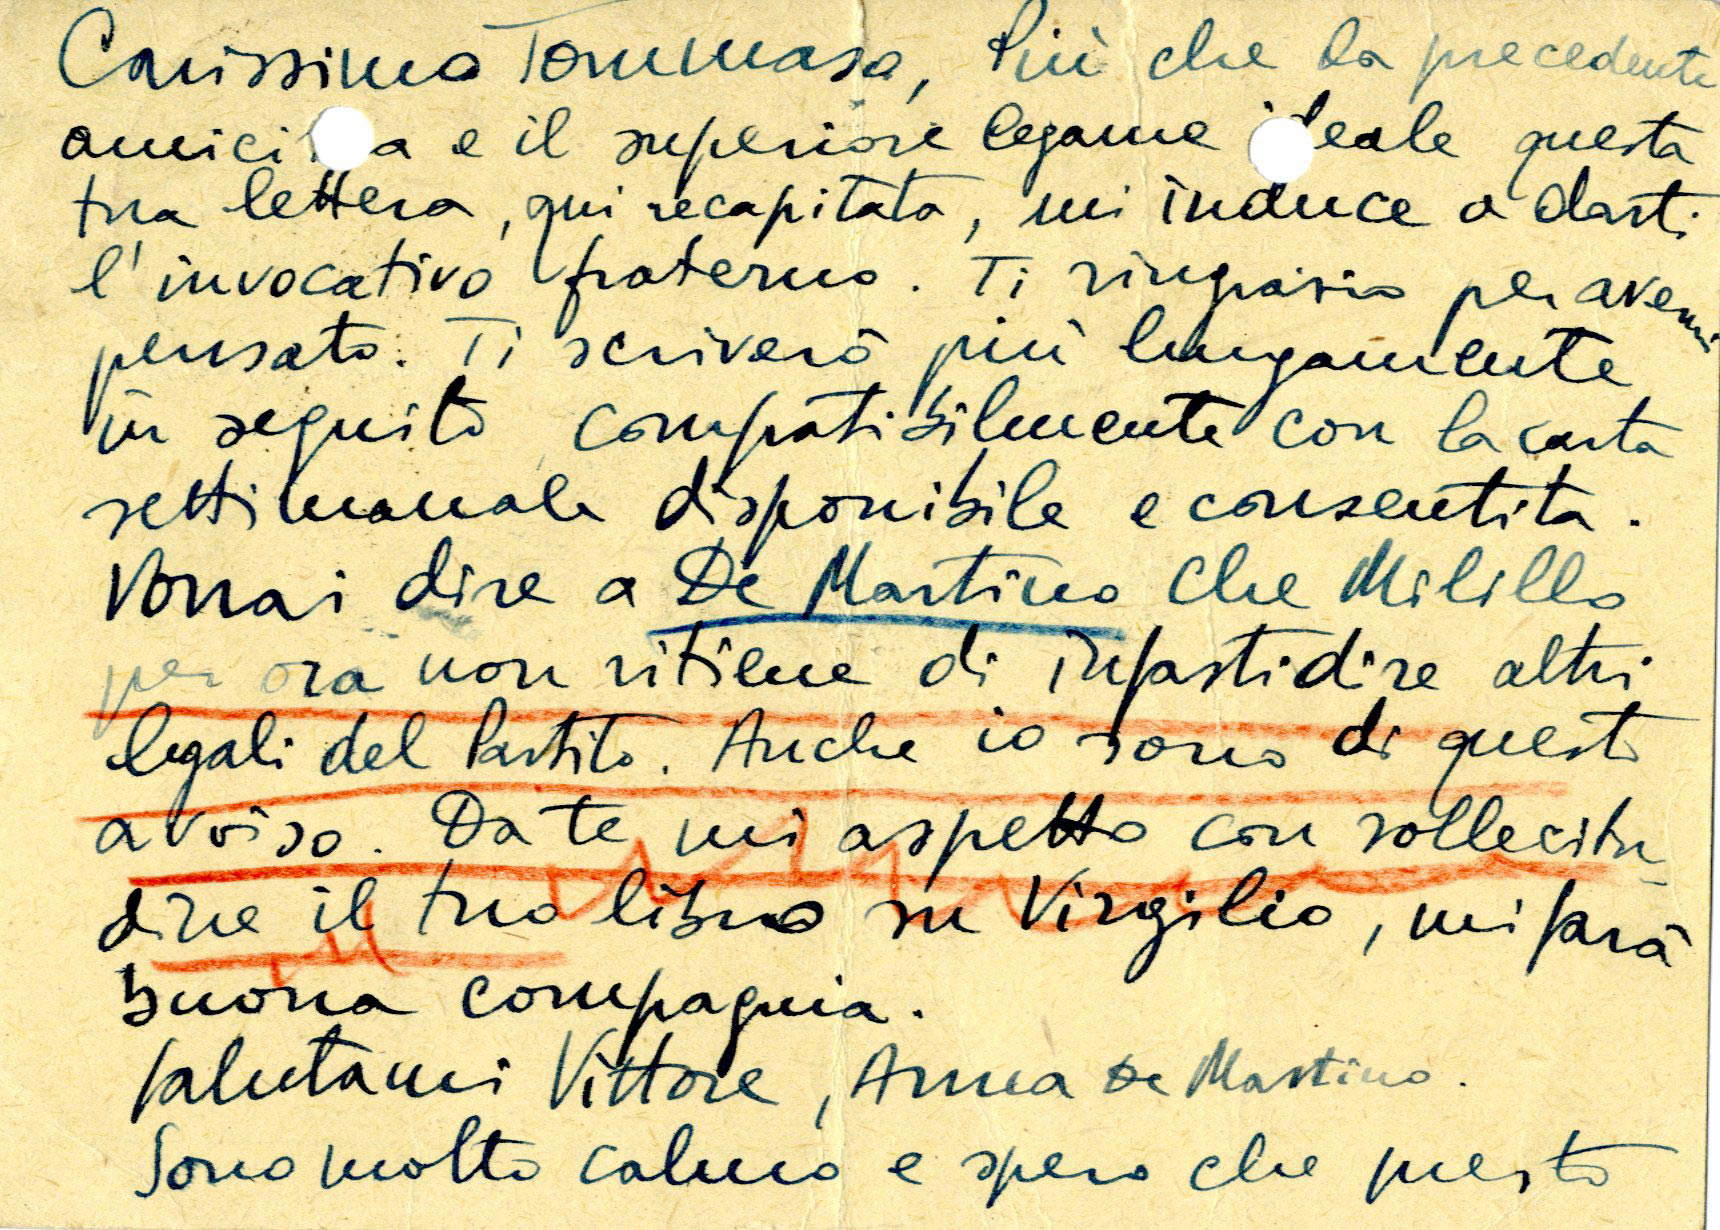 Carissimo Tommaso, Più che la precedente
amicizia e il superiore legame ideale questa
tua lettera, qui recapitata, mi induce a darti
l'invocativo fraterno. Ti ringrazio per avermi
pensato. Ti scriverò più lungamente
in seguito compatibilmente con la carta
settimanale disponibile e consentita.
Vorrai dire a De Martino che Milillo
per ora non ritiene di infastidire altri
legali del Partito. Anche io sono di questo
avviso. Da te mi aspetto con sollecitu-
dine il tuo libro su Virgilio, mi farà
buona compagnia.
Salutami Vittore, Anna De Martino.
Sono molto calmo e spero che presto